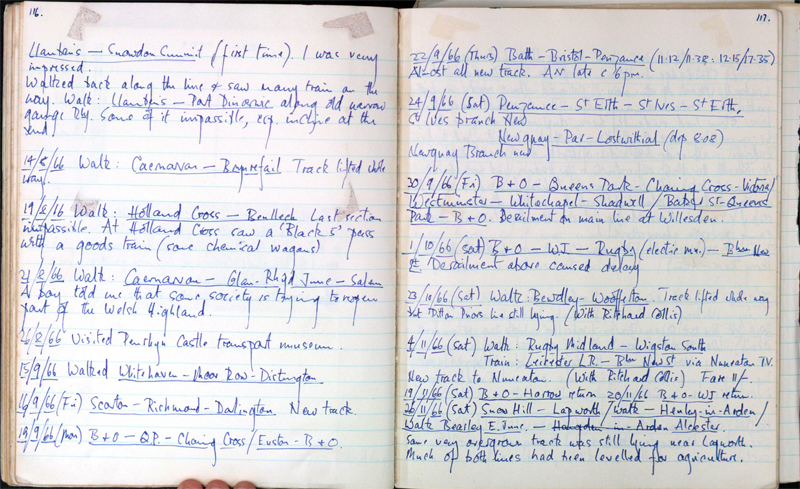 116.
Llanberis — Snowdon Summit (first time). I was very
impressed.
Walked back along the line & saw many trains on the
way. Walk: Llanberis — Port Dinorwic along old narrow
gauge Rly. Some of it impassible, esp. incline at the
end.
14/8/66 Walk: Caernarvon — Bryncrefail Track lifted whole
way.
19/8/66 Walk: Holland Cross — Benllech Last section
impassible. At Holland Cross saw a 'Black 5' pass
with a goods train (some chemical wagons)
21/8/66 Walk: Caernarvon — Glan-Rhyd Junc — Salem
A boy told me that some society is trying to reopen
part of the Welsh Highland.
26/8/66 Visited Penrhyn Castle transport museum.
15/9/66 Walked Whitehaven — Moor Row — Distington
16/9/66 (Fri) Scorton — Richmond — Darlington. New track.
19/9/66 (Mon) B+O — Q.P. — Charing Cross / Euston — B+O.
117.
22/9/66 (Thurs) Bath — Bristol — Penzance (11.12/11.38: 12.15/17.35)
Almost all new track. Arr late c 6pm.
24/9/66 (Sat) Penzance — St Erth — St Ives — St Erth.
St Ives branch New
Newquay — Par — Lostwithial (dep 8.08)
Newquay Branch new
30/9/66 (Fri) B+O — Queens Park — Charing Cross — Victoria/
Westminster — Whitechapel — Shadwell / Baker St — Queens
Park — B+O. Derailment on main line at Willesden.
1/10/66 (Sat) B+O — W.J. — Rugby (electric m.u.) — Bham New
St Derailment above caused delay
23/10/66 (Sat) Walk: Bewdley — Woofferton. Track lifted whole way
but Ditton Priors line still lying. (With Richard Collis)
4/11/66 (Sat) Walk: Rugby Midland — Wigston South
Train: Leicester L.R. — Bham New St via Nuneaton T.V.
New track to Nuneaton. (With Richard Collis) Fare 11/-
19/11/66 (Sat) B+O — Harrow return 20/11/66 B+O — W.J return.
26/11/66 (Sat) Snow Hill — Lapworth / Walk — Henley-in-Arden /
Walk Bearley E. Junc. — in-Arden Alcester.
Some very overgrown track was still lying near Lapworth.
Much of both lines had been levelled for agriculture.